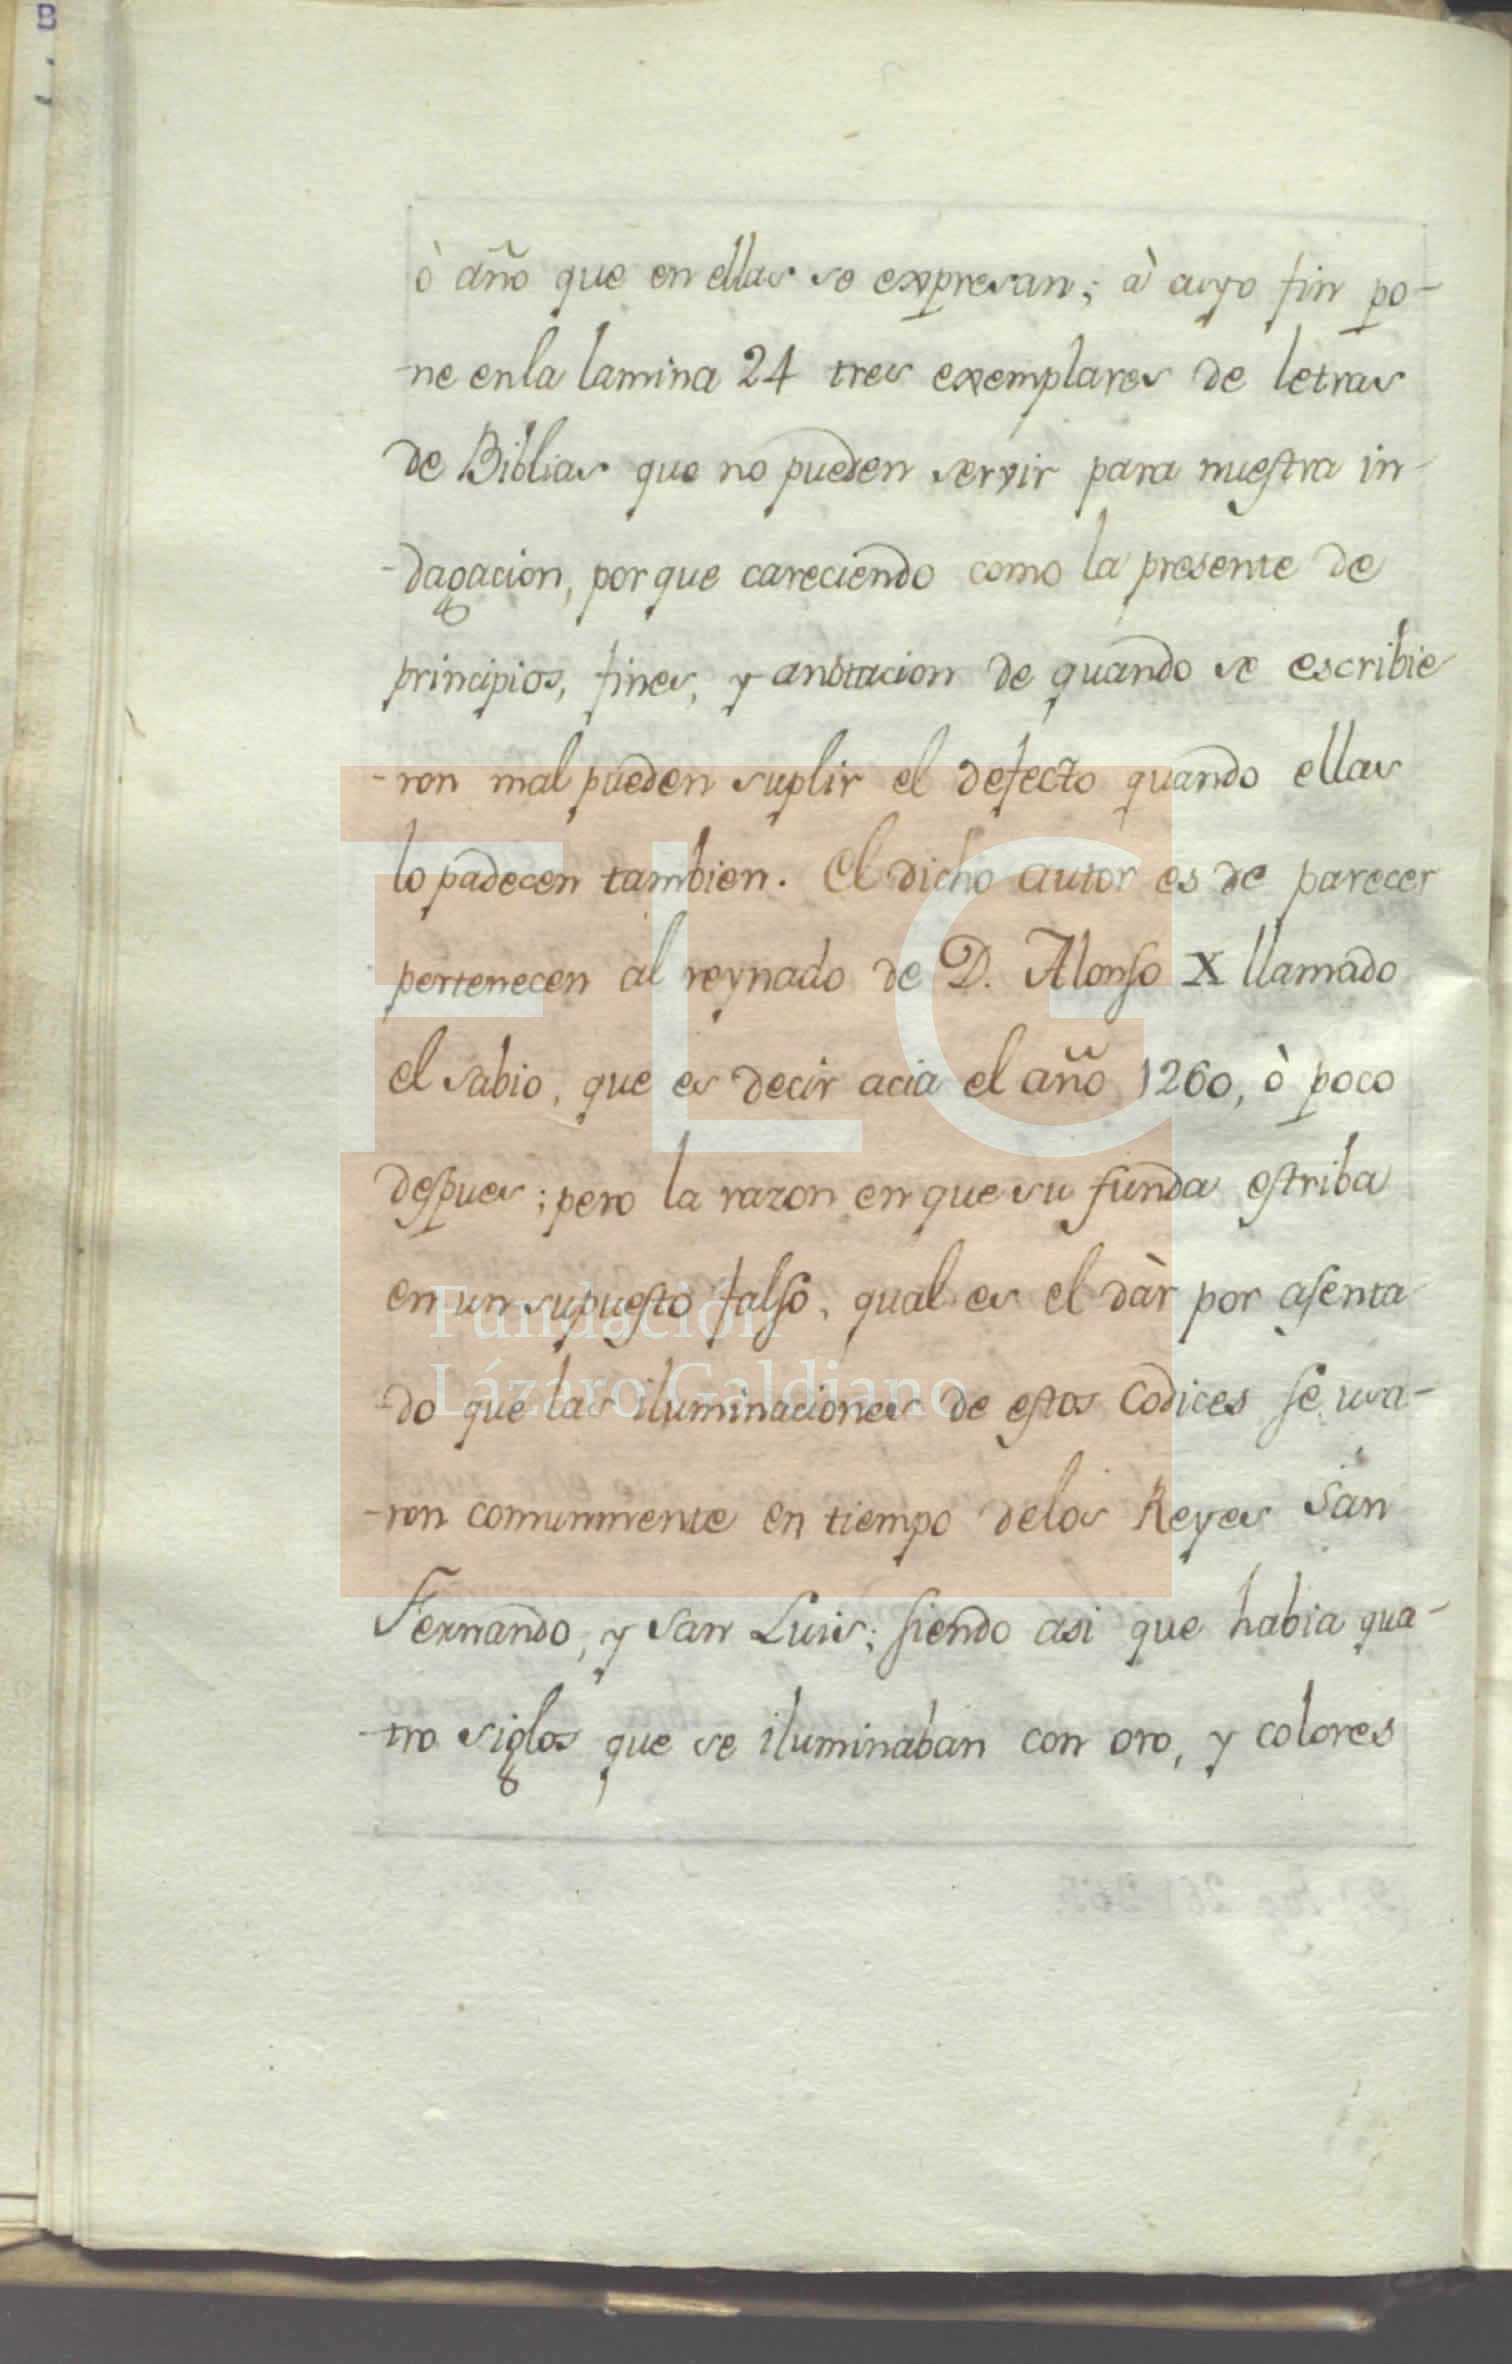 B
ò año que en ellas se expresan; à cuyo fin po-
-ne enla lamina 24 tres exemplares de letras
de Biblias que no pueden servir para nuestra in-
-dagacion, porque careciendo como la presente de
principios, fines, y anotacion de quando se escribie
-ron mal pueden suplir el defecto quando ellas
lo padecen tambien. El dicho autor es de parecer
pertenecen al reynado de D. Alonso X llamado
el sabio, que es decir acia el año 1260, ò poco
despues; pero la razon en que su funda estriba
en un supuesto falso, qual es el dàr por asenta
-do que las iluminaciones de estos Codices se usa-
-ron comunmente en tiempo delos Reyes San
Fernando, y San Luis; siendo asi que habia qua-
-tro siglos que se iluminaban con oro, y colores
FLG
Fundación
Lázaro Galdiano